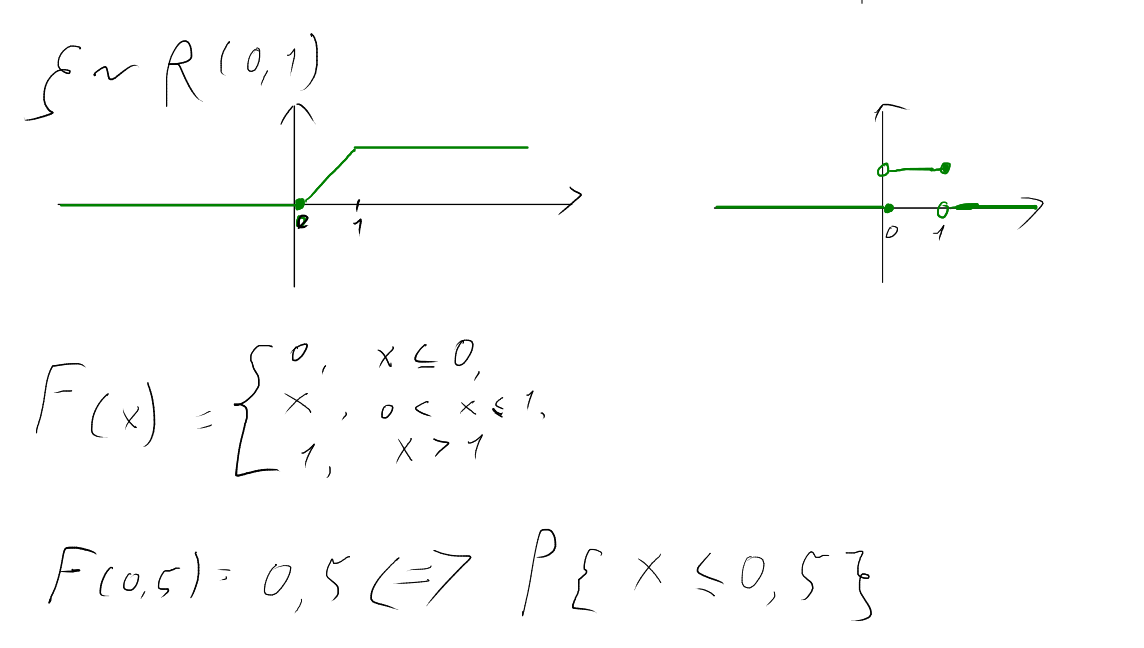 ξ ~ R(0,1)
0 1
0 1
F(x) = { 0, x ≤ 0,
x, 0 < x ≤ 1,
1, x > 1
F(0,5) = 0,5 <=> P{ x ≤ 0,5}